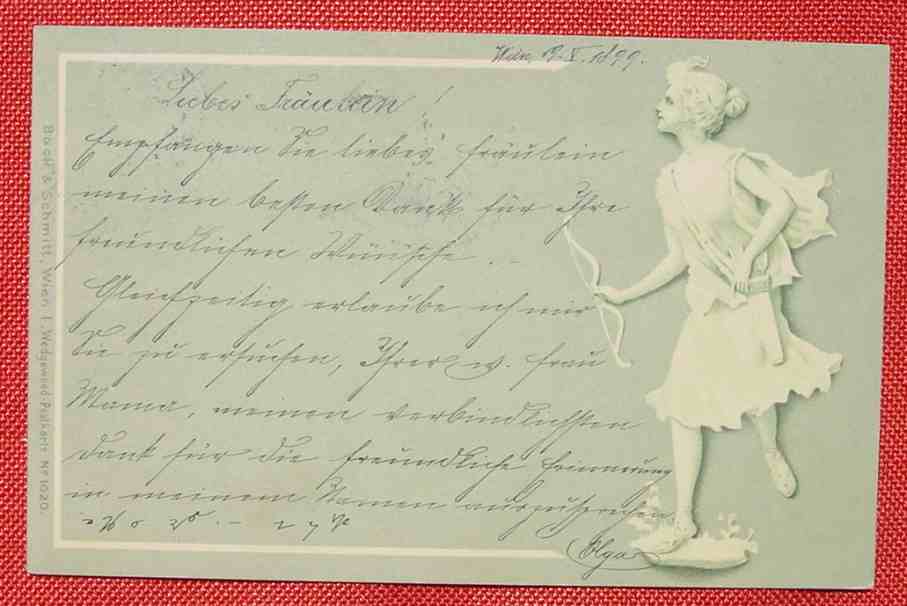 Wien, 1899.
Liebes Fräulein!
Empfangen Sie liebes Fräulein
meinen besten Dank für Ihre
freundlichen Wünsche. –
Gleichzeitig erlaube ich mir
Sie zu ersuchen, Ihrer w. Frau
Mama, meinen verbindlichsten
Dank für die freundliche Erinnerung
in meinem Namen auszusprechen
Olga
Back & Schmitt, Wien I. Wedgewood-Postkarte No 1020.